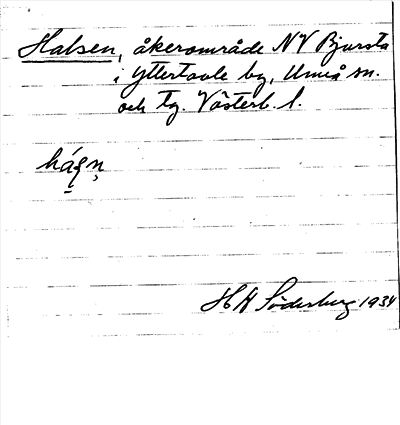 Halsen, åkerområde NV Bjursta
i Yttertavle by, Umeå sn.
och tg. Västerb. l.
H H Söderburg 1934